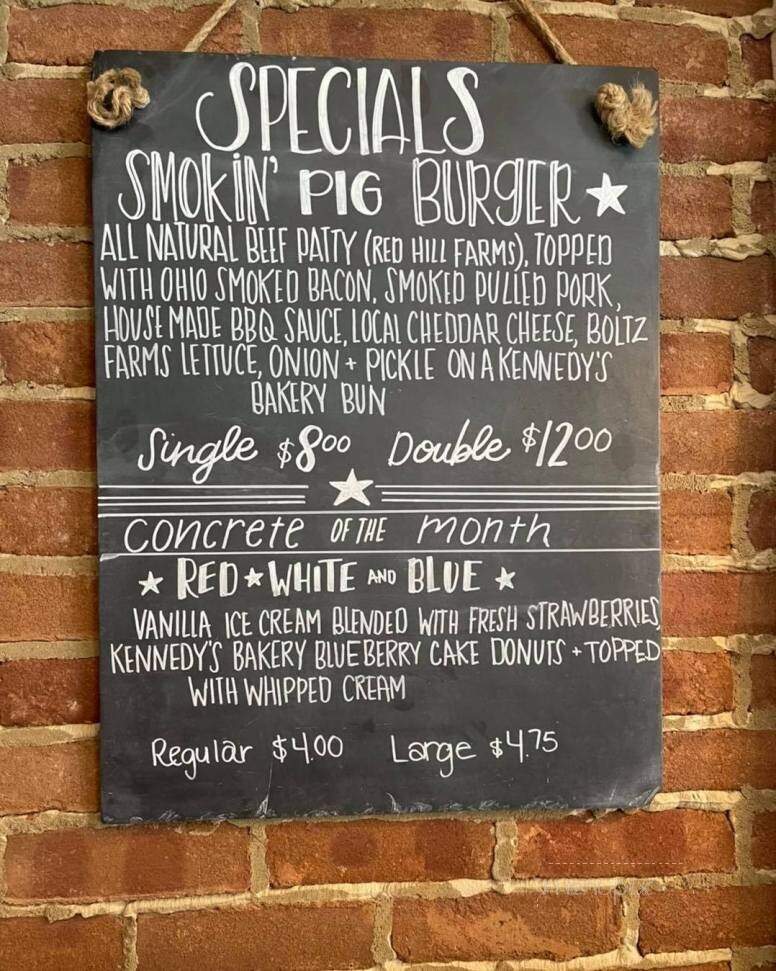 SPECIALS
SMOKIN' PIG BURGER
ALL NATURAL BEEF PATTY (RED HILL FARMS), TOPPED
WITH OHIO SMOKED BACON, SMOKED PULLED PORK,
HOUSE MADE BBQ SAUCE, LOCAL CHEDDAR CHEESE, BOLTZ
FARMS LETTUCE, ONION + PICKLE ON A KENNEDY'S
BAKERY BUN
Single $8.00 Double $12.00
CONCRETE OF THE MONTH
RED WHITE AND BLUE
VANILLA ICE CREAM BLENDED WITH FRESH STRAWBERRIES,
KENNEDY'S BAKERY BLUEBERRY CAKE DONUTS + TOPPED
WITH WHIPPED CREAM
Regular $4.00 Large $4.75